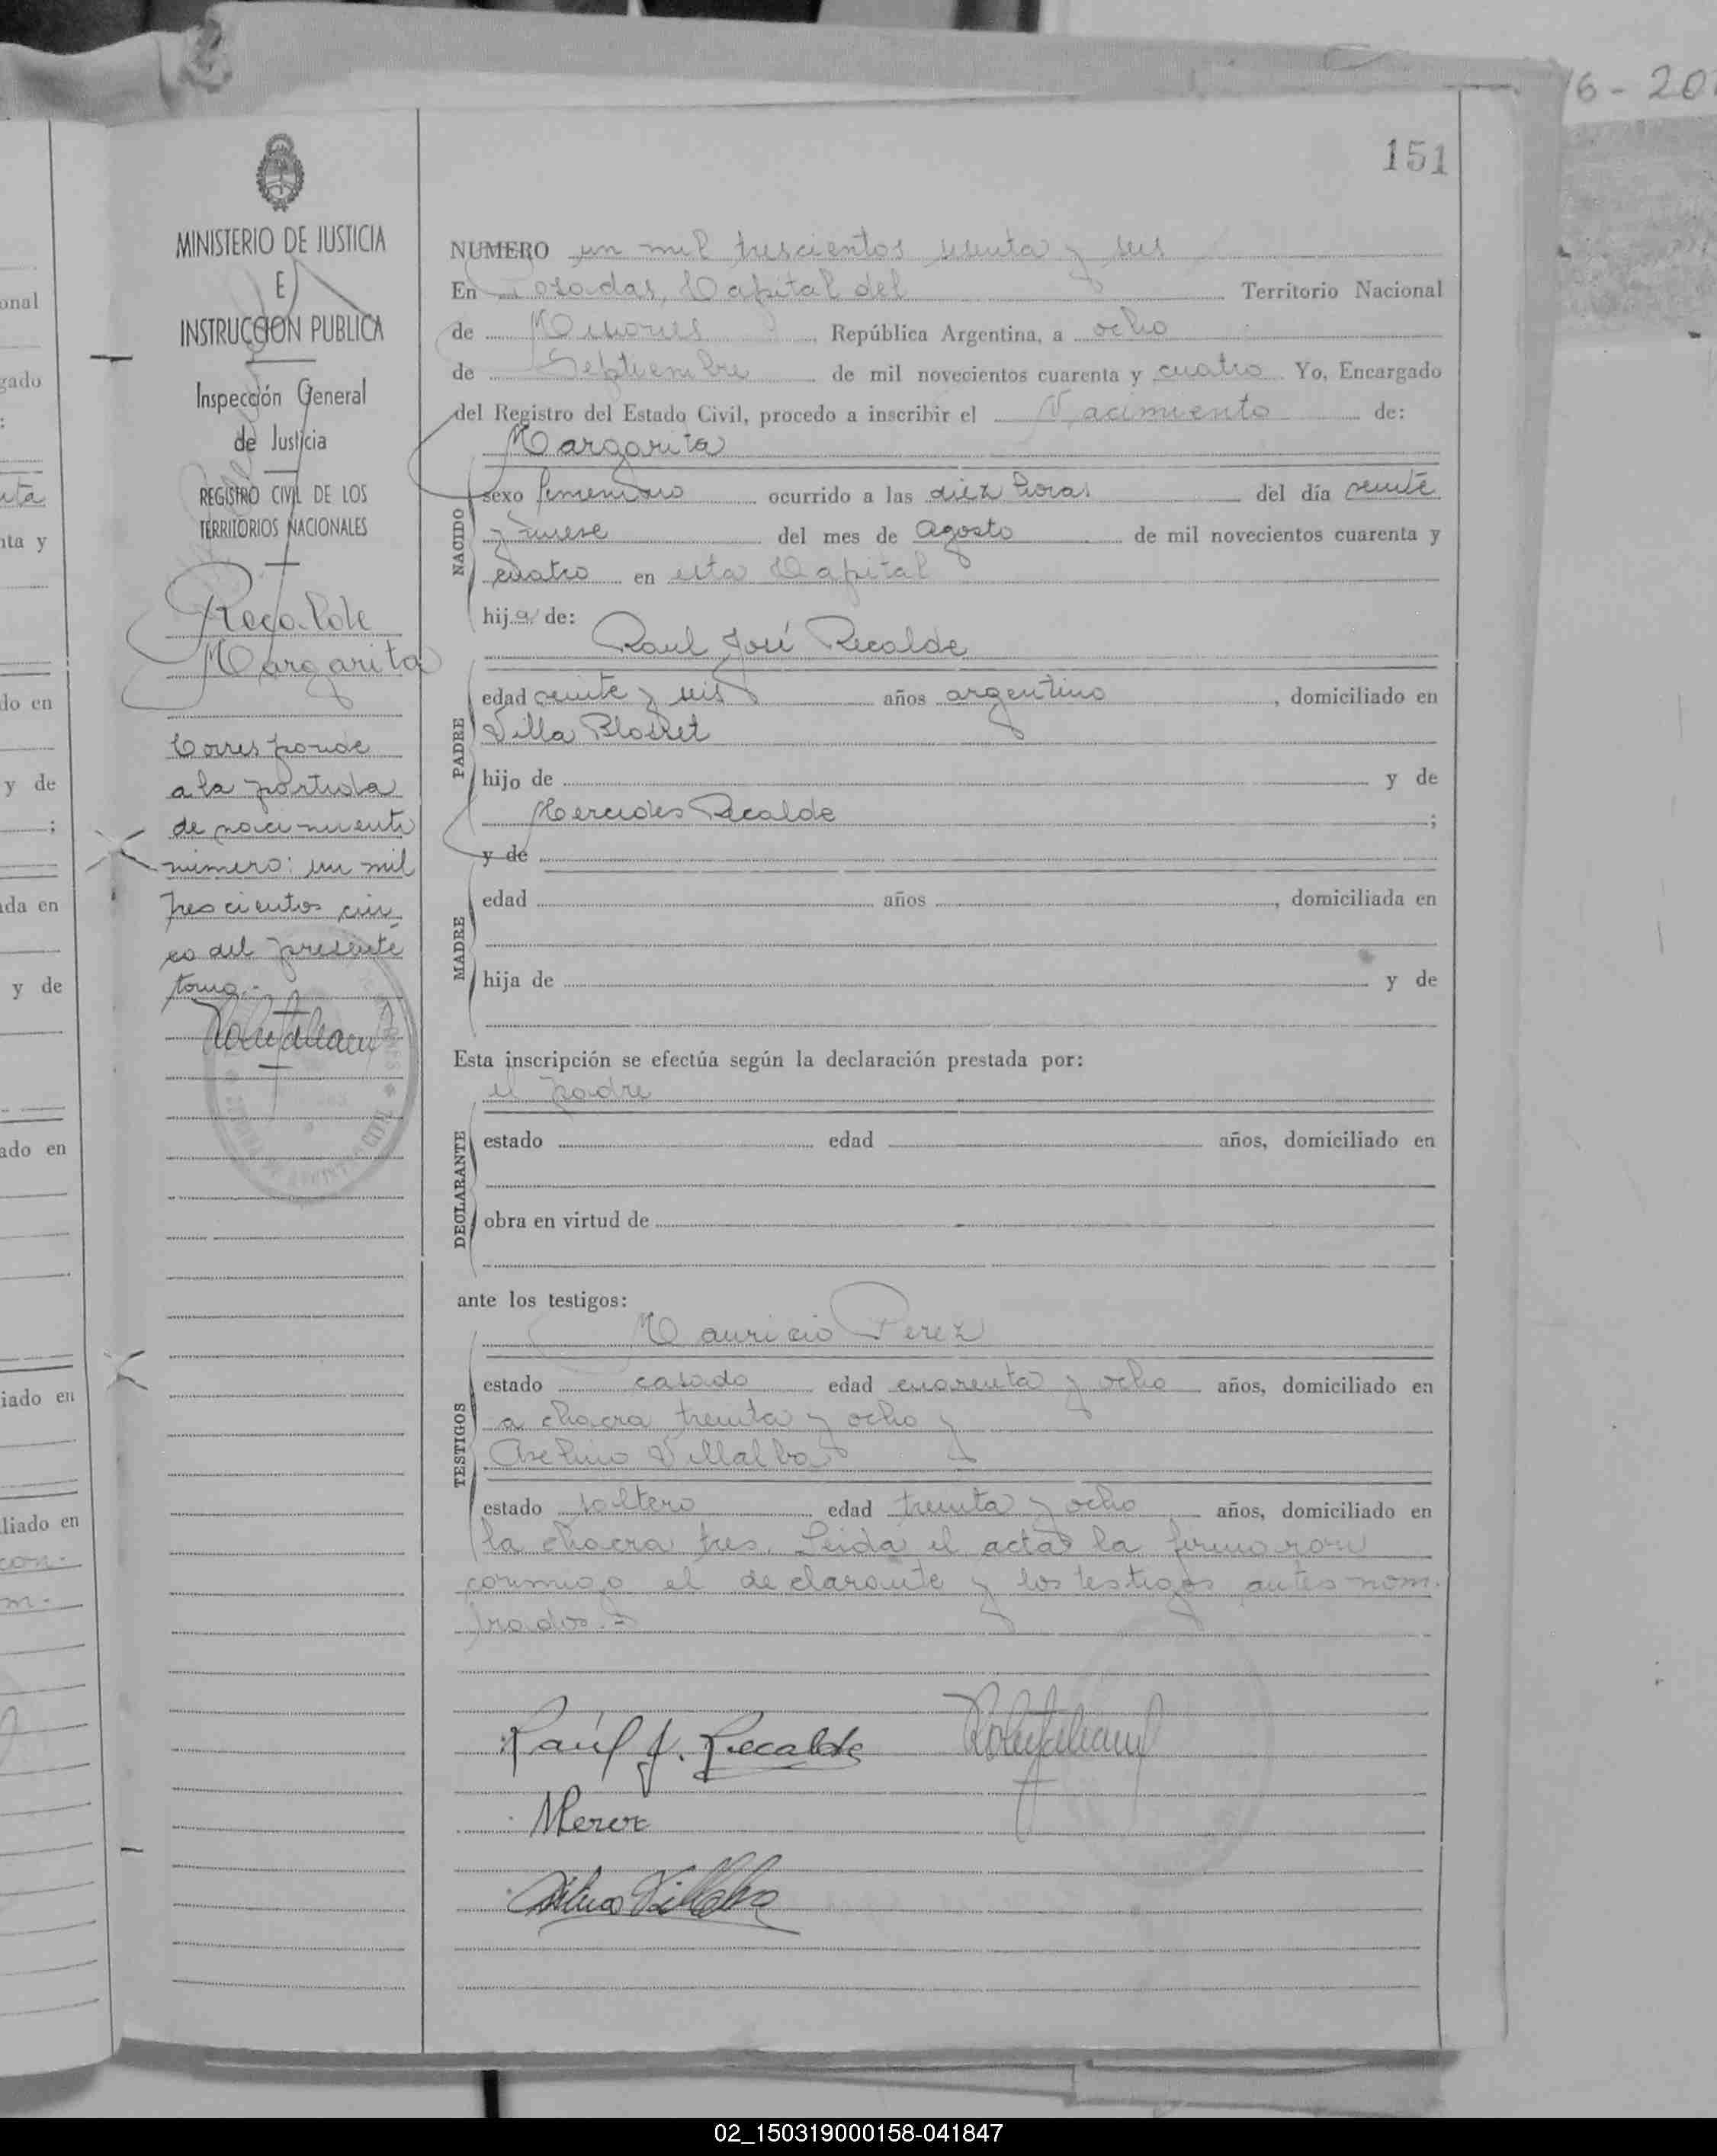 6-20
151
MINISTERIO DE JUSTICIA
E
INSTRUCCION PUBLICA
Inspección General
de Justicia
REGISTRO CIVIL DE LOS
TERRITORIOS NACIONALES
Recalde
Margarita
Corresponde
a la partida
de nacimiento
número: un mil
trescientos cin
co del presente
tomo.-
NUMERO un mil trescientos sesenta y seis
En Posadas, Capital del Territorio Nacional
de Misiones República Argentina, a ocho
de Septiembre de mil novecientos cuarenta y cuatro Yo, Encargado
del Registro del Estado Civil, procedo a inscribir el Nacimiento de:
Margarita
NACIDO
sexo femenino ocurrido a las diez horas del día veinte
y nueve del mes de Agosto de mil novecientos cuarenta y
cuatro en esta Capital
hija de:
Raul José Recalde
PADRE
edad veinte y seis años argentino, domiciliado en
Villa Blosset
hijo de y de
Mercedes Recalde;
y de
MADRE
edad años, domiciliada en
hija de y de
Esta inscripción se efectúa según la declaración prestada por:
el padre
DECLARANTE
estado edad años, domiciliado en
obra en virtud de
ante los testigos:
Mauricio Perez
TESTIGOS
estado casado edad cuarenta y ocho años, domiciliado en
a chacra treinta y ocho y
Villalba
estado soltero edad treinta y ocho años, domiciliado en
la chacra tres. Leida el acta la firmaron
conmigo el declarante y los testigos antes nom-
brados.=
Raúl J. Recalde
Villalba
02_150319000158-041847